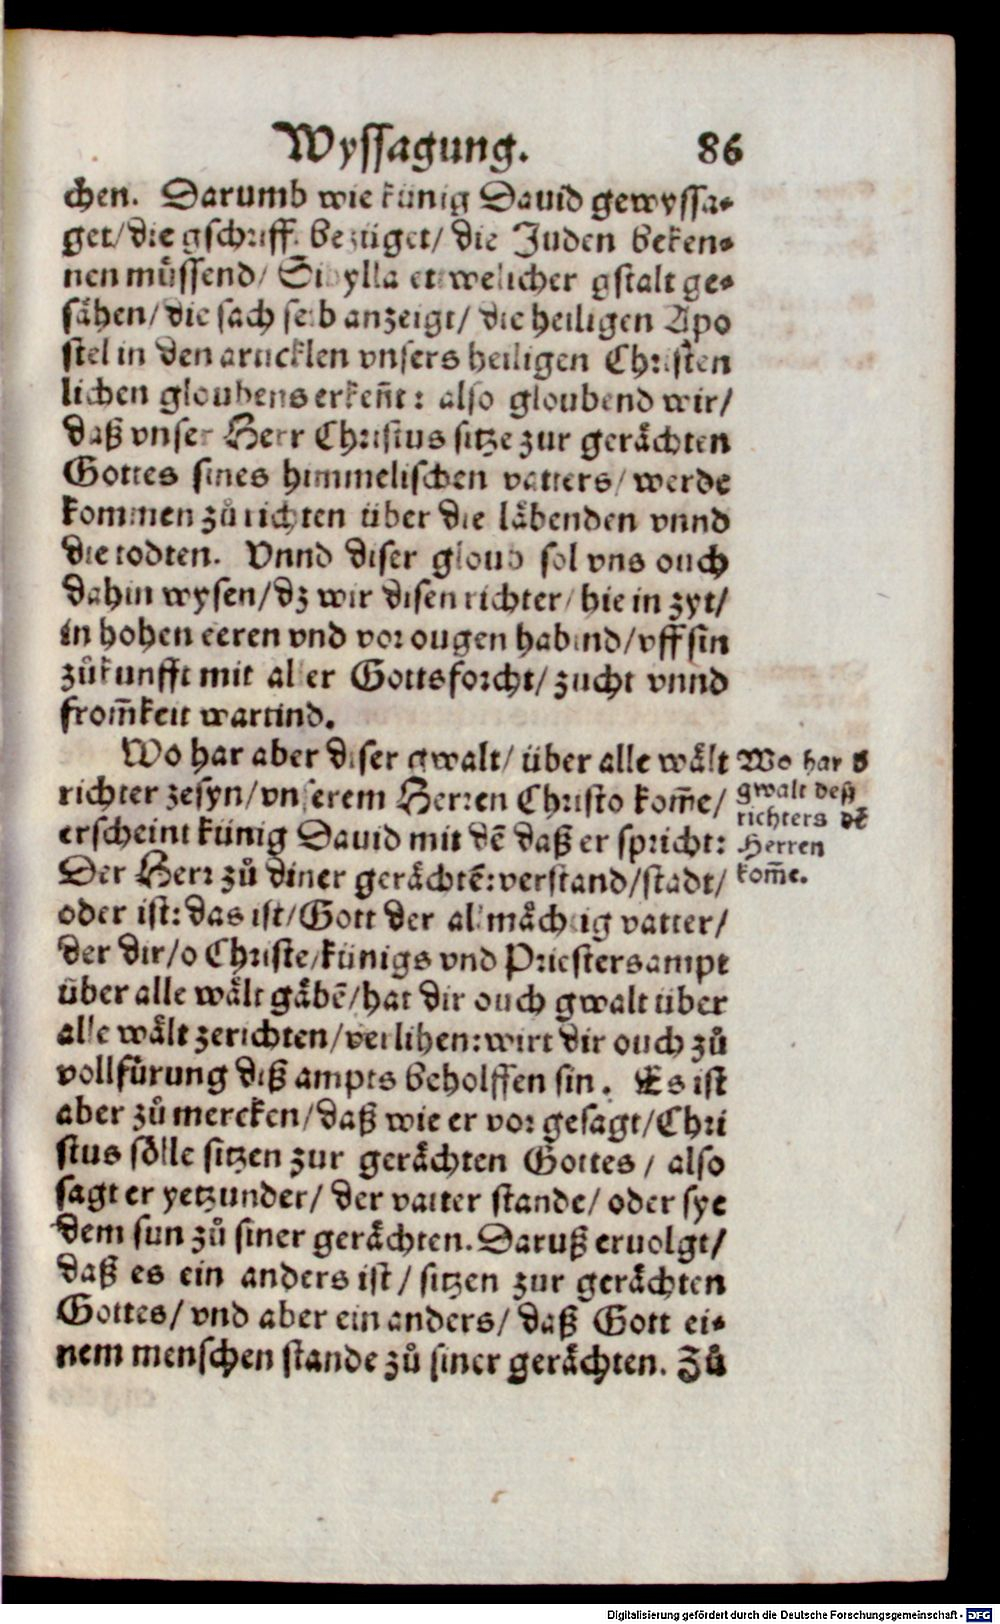 Wyssagung. 86
chen. Darumb wie künig Dauid gewyssa⸗
get/ die gschrifft bezüget/ die Juden beken⸗
nen müssend/ Sibylla etwelicher gstalt ge⸗
sähen/ die sach selb anzeigt/ die heiligen Apo
stel in den articklen vnsers heiligen Christen
lichen gloubens erkeñt: also gloubend wir/
daß vnser Herr Christus sitze zur gerächten
Gottes sines himmelischen vatters/ werde
kommen zů richten über die läbenden vnnd
die todten. Vnnd diser gloub sol vns ouch
dahin wysen/ dz wir disen richter/ hie in zyt/
in hohen eeren vnd vor ougen habind/ vff sin
zůkunfft mit aller Gottsforcht/ zucht vnnd
from̃keit wartind.
Wo har aber diser gwalt/ über alle wält
richter zesyn/ vnserem Herren Christo kom̃e/
erscheint künig Dauid mit dē daß er spricht:
Der Herr zů diner gerächtē: verstand/ stadt/
oder ist: das ist/ Gott der allmächtig vatter/
der dir/ o Christe/ künigs vnd Priestersampt
über alle wält gäbē/ hat dir ouch gwalt über
alle wält zerichten/ verlihen: wirt dir ouch zů
vollfürung diß ampts beholffen sin. Es ist
aber zů mercken/ daß wie er vor gesagt/ Chri
stus sölle sitzen zur gerächten Gottes/ also
sagt er yetzunder/ der vatter stande/ oder sye
dem sun zů siner gerächten. Daruß eruolgt/
daß es ein anders ist/ sitzen zur gerächten
Gottes/ vnd aber ein anders/ daß Gott ei⸗
nem menschen stande zů siner gerächten. Zů
Wo har d
gwalt deß
richters dē
Herren
kom̃e.
Digitalisierung gefördert durch die Deutsche Forschungsgemeinschaft - DFG